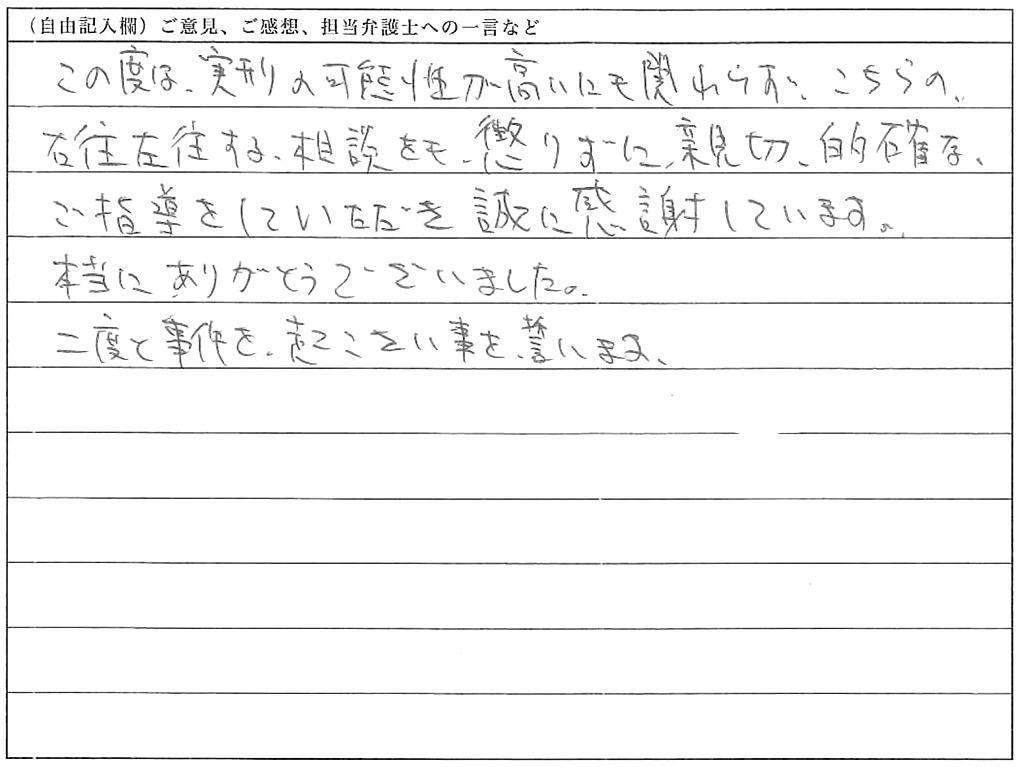 （自由記入欄）ご意見、ご感想、担当弁護士への一言など
この度は、実刑の可能性が高いにも関わらず、こちらの、
右往左往する、相談をも、懲りずに、親見切、的確な、
ご指導をしていただき誠に感謝しています。
本当にありがとうございました。
二度と事件を、起こさない事を、誓います、